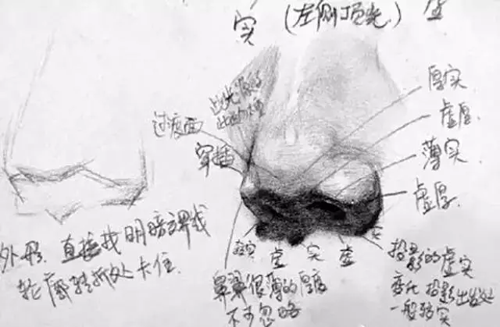 实 (左侧顶光) 虚
厚实
虚厚
过度面
薄实
穿插
虚厚
虚 实 虚 实
外形,直接找明暗
轮廓转折处卡住
鼻翼很薄的厚度
不可忽略
投影的虚实
变化 投影出发处
一般较实